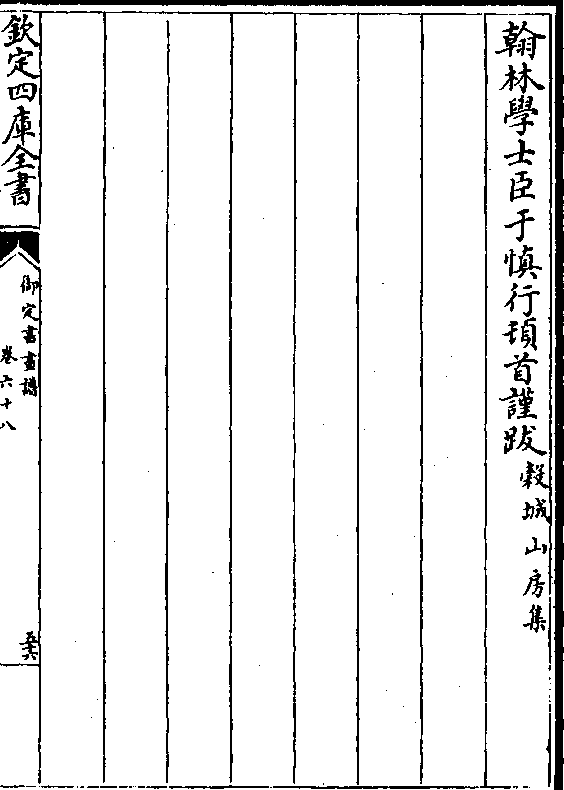 翰林學士臣于慎行頓首謹跋穀城山房集
欽定四庫全書
御定書畫譜
卷六十八
五十六